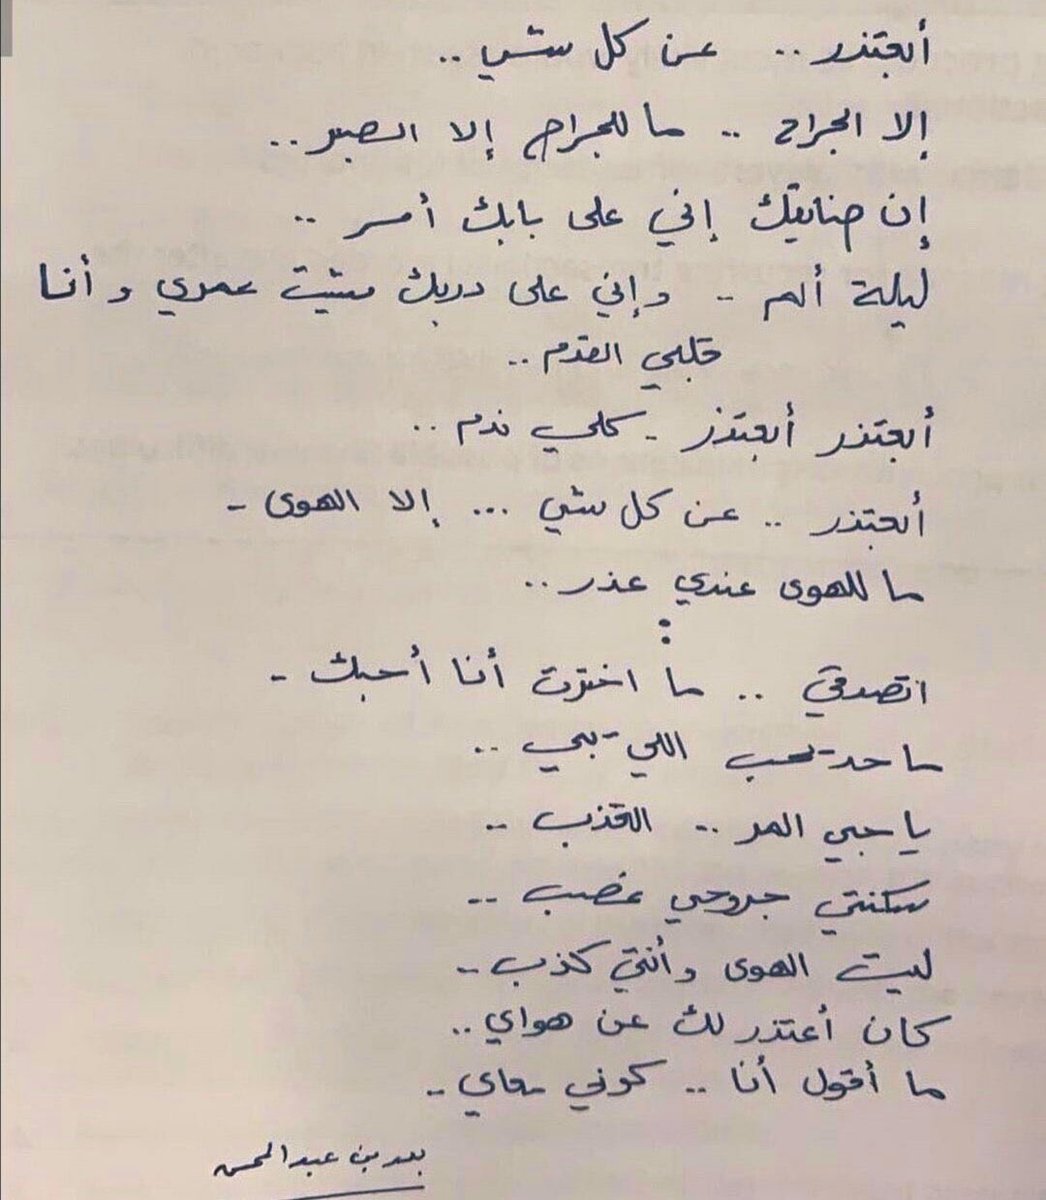 أعتذر .. عن كل شي ..
إلا الجراح .. ما للجراح إلا الصبر ..
إن ضايقك إني على بابك أمر ..
ليلة ألم - وإني على دربك مشيت عمري وأنا
قلبي القدم ..
أعتذر أعتذر - كلي ندم ..
أعتذر .. عن كل شي ... إلا الهوى -
ما للهوى عندي عذر ..
:
اتصدقي .. ما اخترت أنا أحبك -
ما حد يحب اللي يبي ..
يا حبي المر .. العذب ..
سكنتي جروحي غصب ..
ليت الهوى وأنتي كذب ..
كان أعتذر لك عن هواي ..
ما أقول أنا .. كوني معاي ..
بدر بن عبدالمحسن